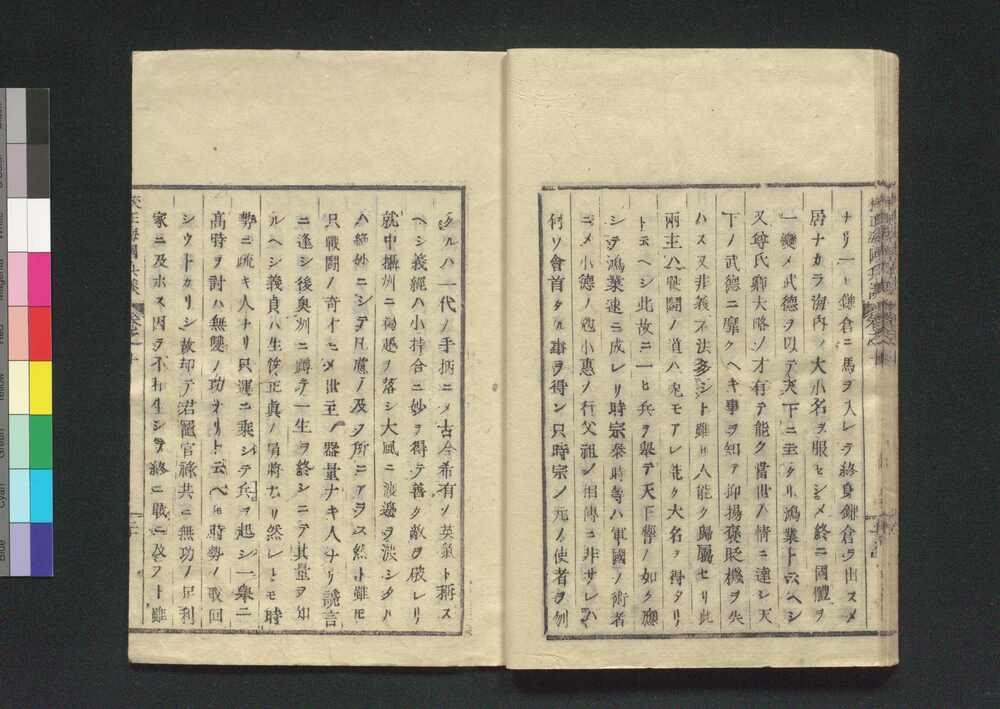 ナリ一ヒ鎌倉ニ馬ヲ入レテ終身鎌倉ヲ出スメ
居ナカラ海内ノ大小名ヲ服セシメ終ニ國體ヲ
一變メ武德ヲ以テ天下ニ主タリ鴻業ト云ヘシ
又尊氏卿大略ノ才有テ能ク當世ノ情ニ達シ天
下ノ武德ニ靡クヘキ事ヲ知テ抑揚褒貶機ヲ失
ハス又非義不法多シト雖ヒ人能ク歸屬セリ此
兩主ハ戰鬪ノ道ハ兎モアレ能ク大名ヲ得タリ
ト云ヘシ此故ニ一ヒ兵ヲ擧テ天下響ノ如ク應
シテ鴻業速ニ成レリ時宗泰時等ハ軍國ノ術者
ニメ小德ノ小惠ノ行父祖ノ相傳ニ非サレハ
何ソ會首タル事ヲ得ン只時宗ノ元ノ使者ヲ刎
タルハ一代ノ手柄ニメ古今希有ノ英氣ト稱ス
ヘシ義經ハ小持合ニ妙ヲ得テ善ク敵ヲ破レリ
就中攝州ニ鵯越ヲ落シ大風ニ渡邊ヲ渡シタル
ハ絕妙ニシテ凡慮ノ及フ所ニアラス然ト雖モ
只戰鬪ノ奇才ニメ世主ノ器量ナキ人ナリ讒言
ニ逢シ後奧州ニ蹲テ一生ヲ終シニテ其量ヲ知
ルヘシ義貞ハ生質正眞ノ勇將ナリ然レトモ時
勢ニ疏キ人ナリ只運ニ乘シテ兵ヲ起シ一擧ニ
高時ヲ討ハ無雙ノ功ナリト云ヘ時勢ノ戰回
シウトカリシ故却テ君寵官祿共ニ無功ノ足利
家ニ及ホス因テ不和生シテ終ニ戰ニ及フト雖